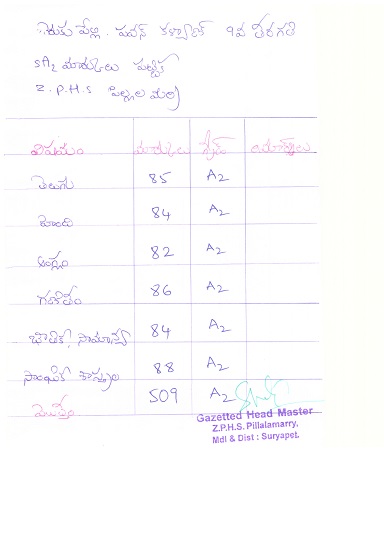 చెరుపల్లి. పవన్ కళ్యాణ్ 9వ తరగతి
SA2 మార్కులు పట్టిక
Z.P.H.S పిల్లలమర్రి
విషయం మార్కులు గ్రేడ్
తెలుగు 85 A2
హింది 84 A2
ఆంగ్లం 82 A2
గణితం 86 A2
భౌతిక, సామాన్య 84 A2
సాంఘిక శాస్త్రం 88 A2
మొత్తం 509 A2
Gazetted Head Master
Z.P.H.S. Pillalamarry,
Mdl & Dist : Suryapet.